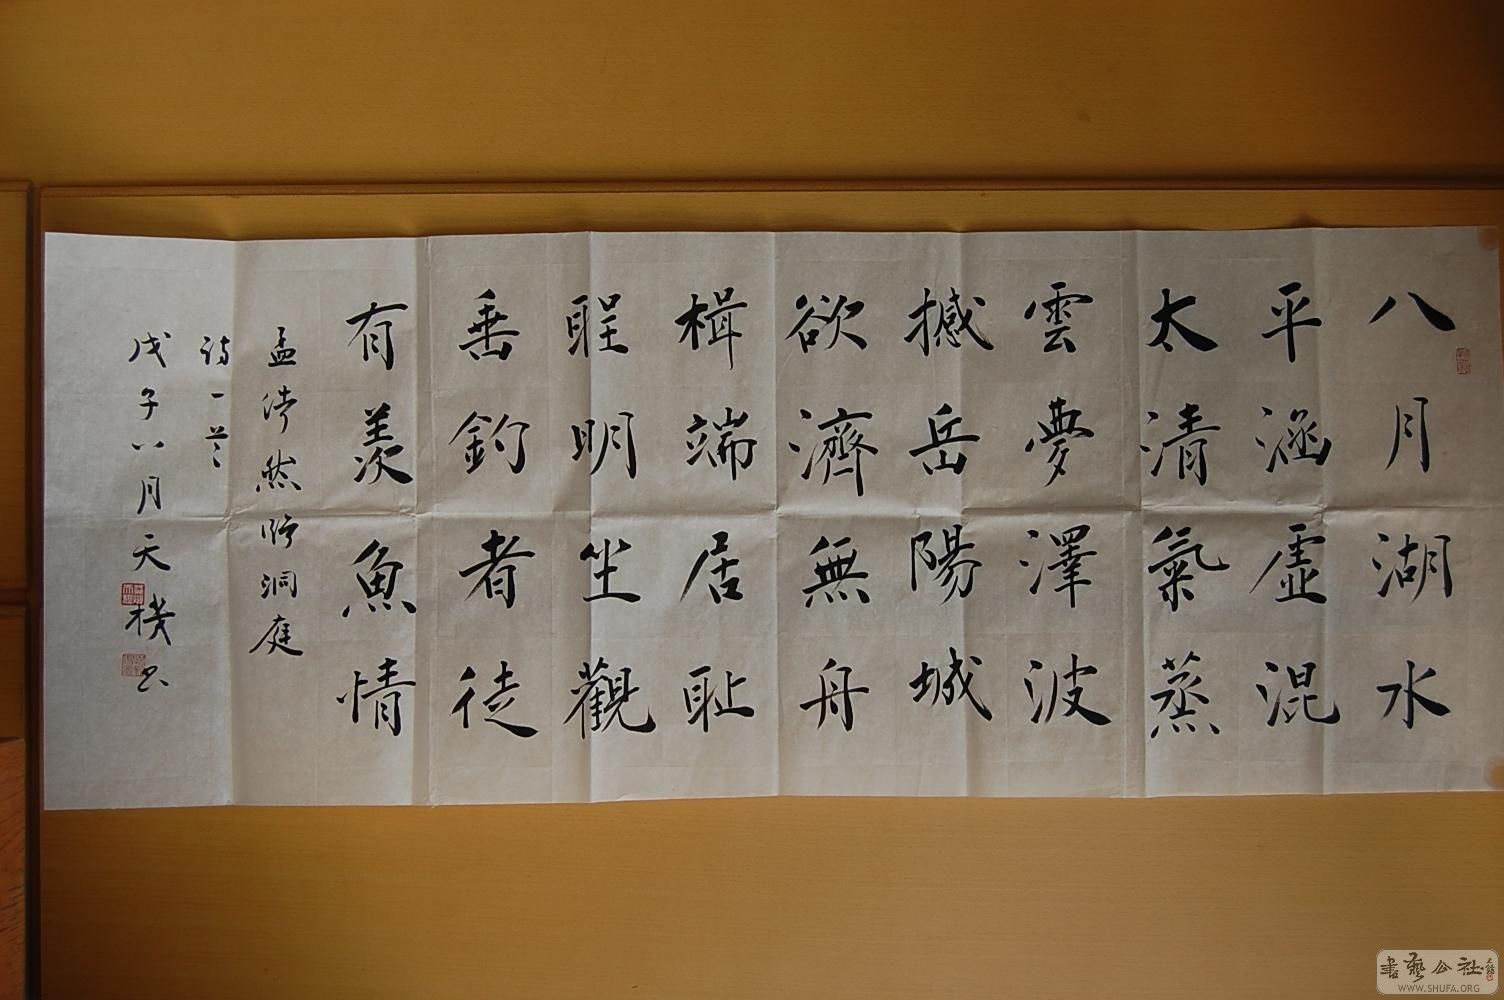 八月湖水
平涵虛混
太清氣蒸
雲夢澤波
撼岳陽城
欲濟無舟
楫端居耻
聖明坐觀
垂釣者徒
有羨魚情
孟浩然臨洞庭
詩一首
戊子八月天棧書
書藝公社
WWW.SHUFA.ORG